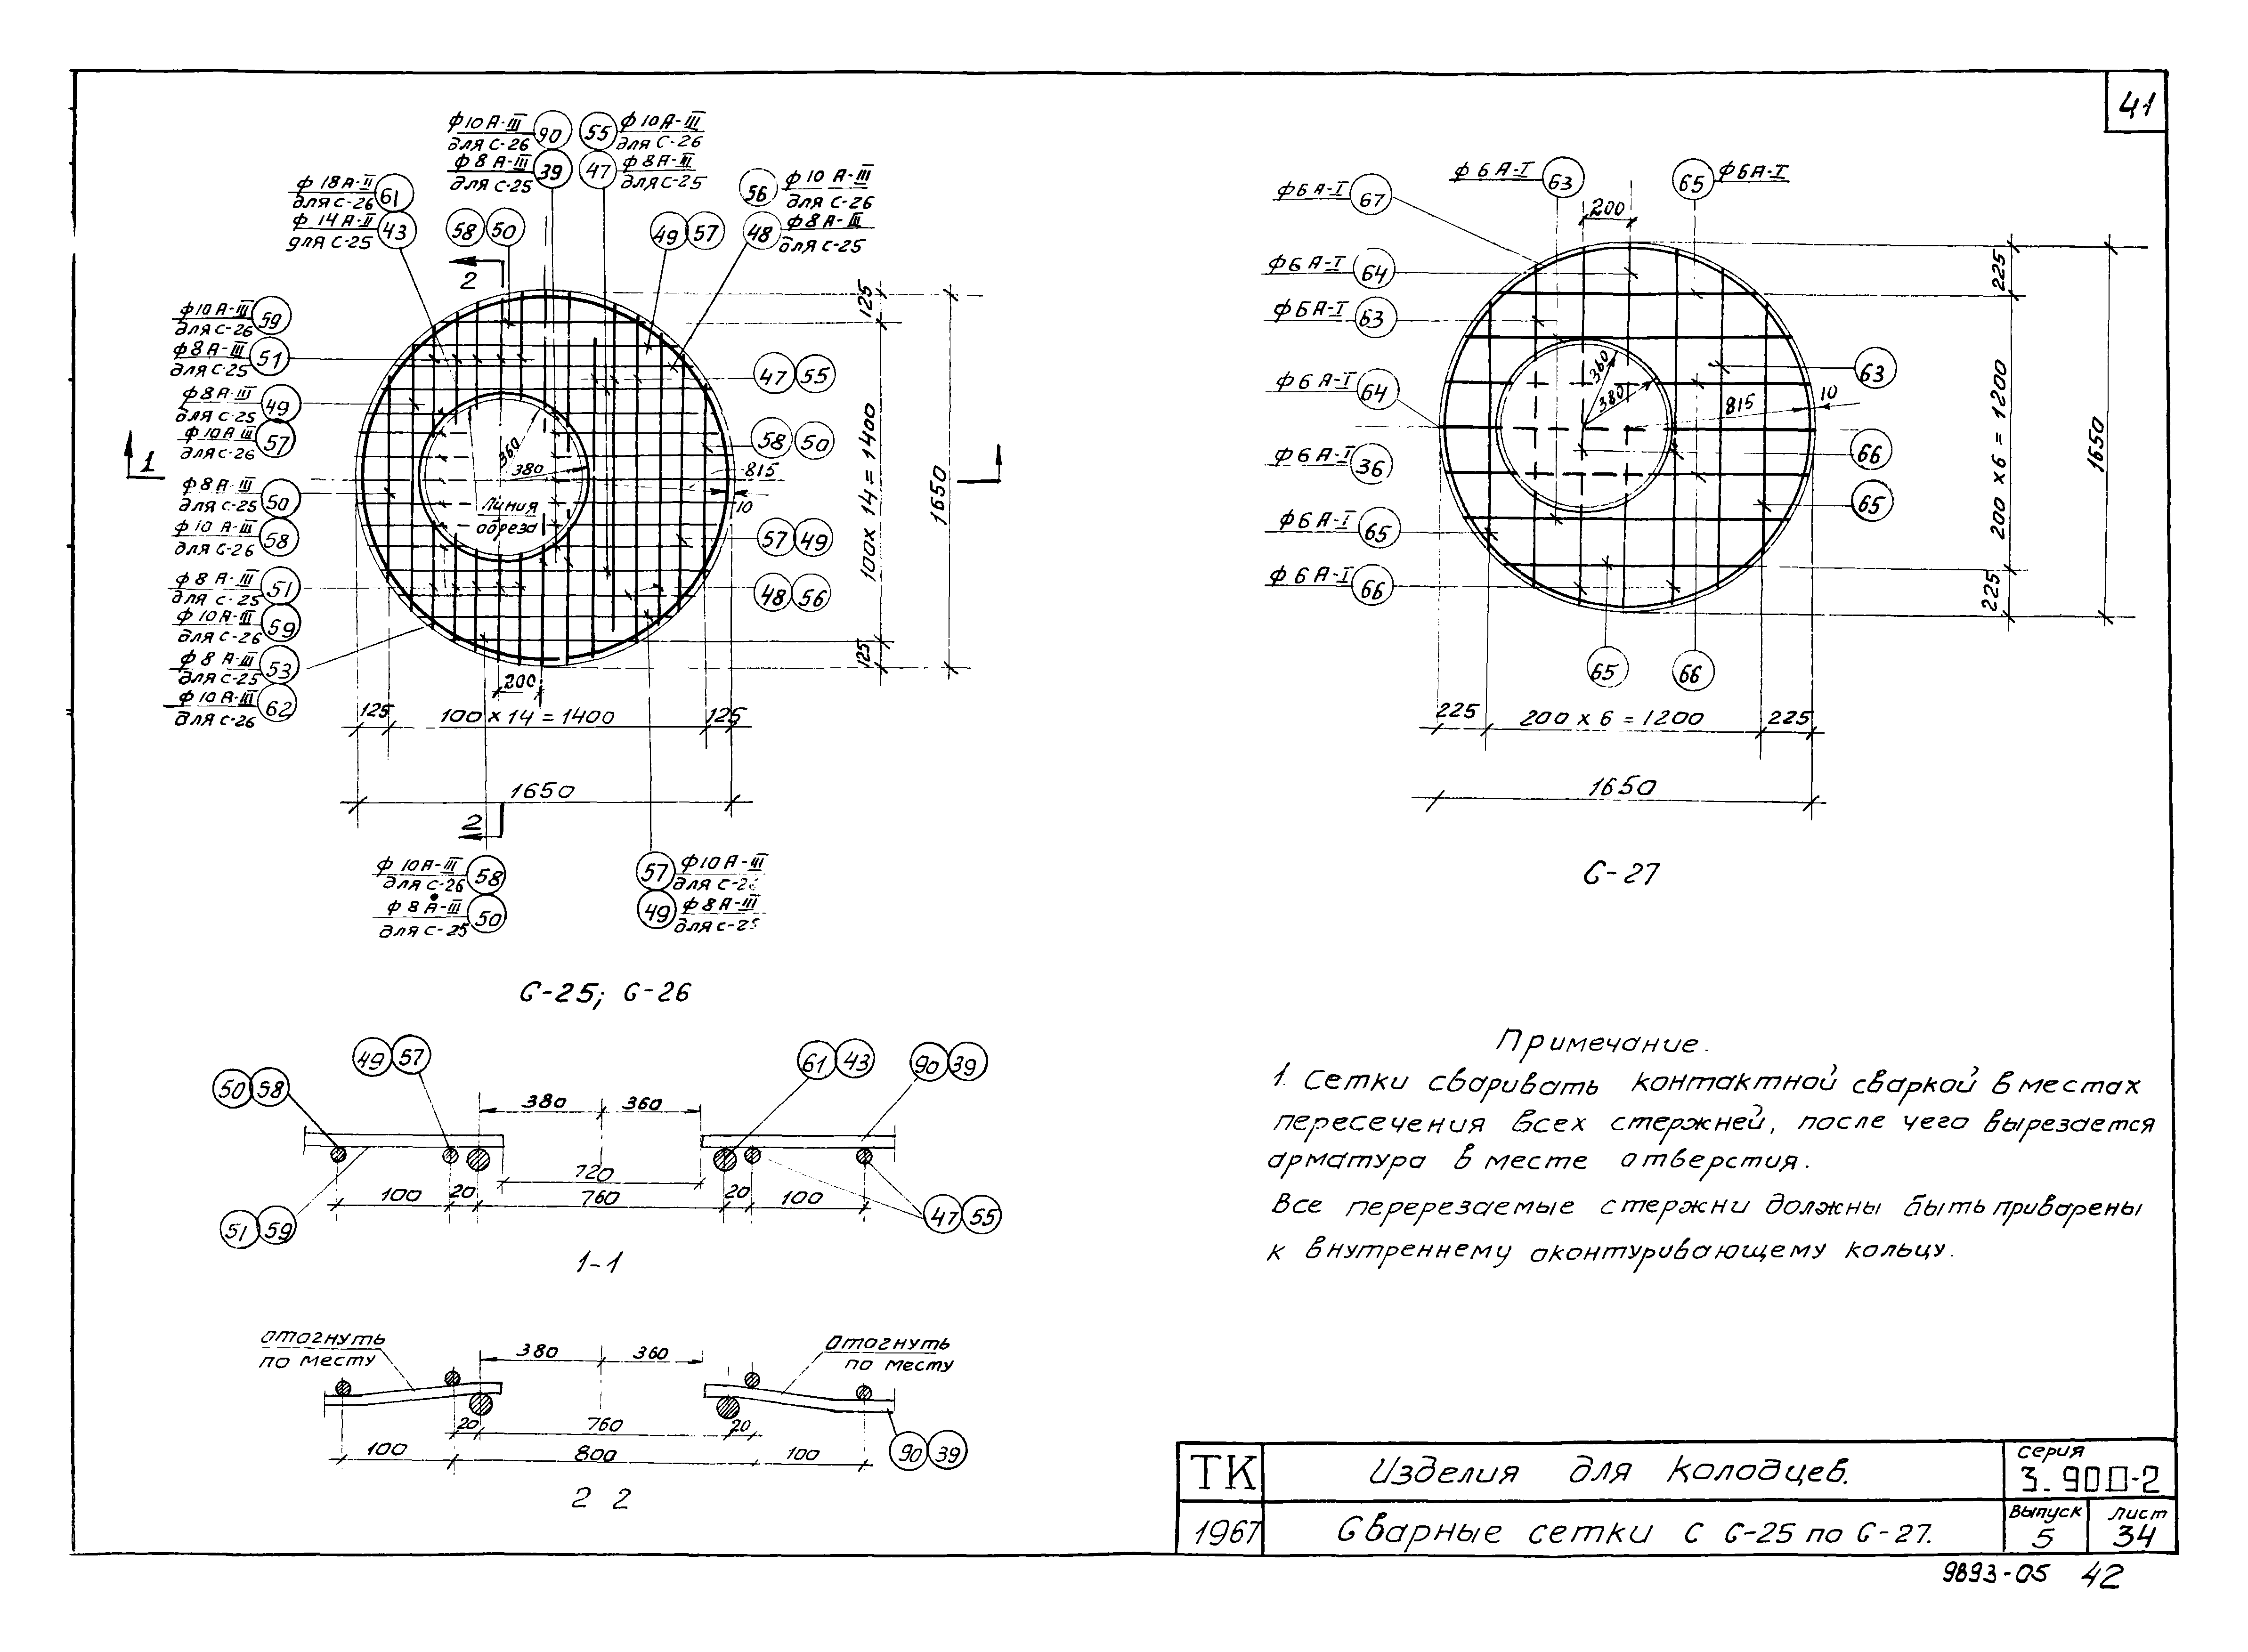 41
ф10 А-III
для С-26
90
ф8 А-III
для С-25
39
55
ф10 А-III
для С-26
47
ф8 А-III
для С-25
ф18 А-II
для С-26
61
ф14 А-II
для С-25
43
58
50
49
57
56
ф10 А-III
для С-26
48
ф8 А-III
для С-25
2
ф10 А-III
для С-26
59
ф8 А-III
для С-25
51
ф8 А-III
для С-25
49
ф10 А III
для С-26
57
ф8 А-III
для С-25
50
ф10 А-III
для С-26
58
ф8 А-III
для С-25
51
ф10 А-III
для С-26
59
ф8 А-III
для С-25
53
ф10 А-III
для С-26
62
1
47
55
58
50
57
49
48
56
360
380
815
10
Линия
обреза
125
100 х 14 = 1400
125
1650
200
125
100 х 14 = 1400
125
1650
2
ф10 А-III
для С-26
58
ф8 А-III
для С-25
50
57
ф10 А-III
49
ф8 А-III
С-25; С-26
ф6 А-I
67
ф6 А-I
63
65
ф6 А-I
200
ф6 А-I
64
ф6 А-I
63
ф6 А-I
64
ф6 А-I
36
ф6 А-I
65
ф6 А-I
66
63
66
65
65
66
360
380
815
10
225
200 х 6 = 1200
225
1650
225
200 х 6 = 1200
225
1650
С-27
50
58
49
57
61
43
90
39
380
360
720
100
20
760
20
100
51
59
47
55
1-1
отогнуть
по месту
380
360
отогнуть
по месту
20
760
20
100
800
100
90
39
2 2
Примечание.
1. Сетки сваривать контактной сваркой в местах
пересечения всех стержней, после чего вырезается
арматура в месте отверстия.
Все перерезаемые стержни должны быть приварены
к внутреннему оконтуривающему кольцу.
ТК
Изделия для колодцев.
серия
3.900-2
1967
Сварные сетки с С-25 по С-27.
выпуск
5
лист
34
9893-05 42